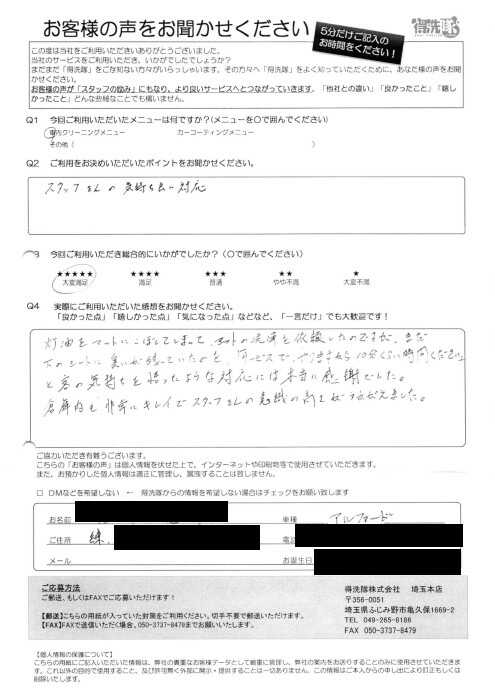 お客様の声をお聞かせください
5分だけご記入の
お時間をください！
得洗隊
この度は当社をご利用いただきありがとうございました。
当社のサービスをご利用いただき、いかがでしたでしょうか？
まだまだ「得洗隊」をご存知ない方々がいらっしゃいます。その方々へ「得洗隊」をよく知っていただくために、あなた様の声をお聞
かせください。
お客様の声が「スタッフの励み」にもなり、より良いサービスへとつながっていきます。「他社との違い」「良かったこと」「嬉し
かったこと」どんな些細なことでも構いません。
Q1 今回ご利用いただいたメニューは何ですか？(メニューを〇で囲んでください)
車内クリーニングメニュー カーコーティングメニュー
その他（ ）
Q2 ご利用をお決めいただいたポイントをお聞かせください。
スタッフさんの気持ち良い対応
3 今回ご利用いただき総合的にいかがでしたか？（〇で囲んでください）
★★★★★ ★★★★ ★★★ ★★ ★
大変満足 満足 普通 やや不満 大変不満
Q4 実際にご利用いただいた感想をお聞かせください。
「良かった点」「嬉しかった点」「気になった点」などなど、「一言だけ」でも大歓迎です！
灯油をマットにこぼしてしまって、マットの洗浄を依頼したのですが、まだ
下のシートに臭いが残っていたのを、サービスで、やりますから10分くらい時間ください
と客の気持ちを思ったような対応には本当に感謝でした。
倉庫内も非常にキレイでスタッフさんの意識の高さがうかがえました。
ご協力いただき有難うございます。
こちらの「お客様の声」は個人情報を伏せた上で、インターネットや印刷物等で使用させていただきます。
また、お預かりした個人情報は適正に管理し、漏洩することは致しません。
□ DMなどを希望しない ← 得洗隊からの情報を希望しない場合はチェックをお願い致します
お名前 車種 アルファード
ご住所 練 電話
メール お誕生日
ご応募方法
ご郵送、もしくはFAXでご応募いただけます！
【郵送】こちらの用紙が入っていた封筒をご利用ください。切手不要で郵送いただけます。
【FAX】FAXで送信いただく場合、050-3737-8479までお願いいたします。
得洗隊株式会社 埼玉本店
〒356-0051
埼玉県ふじみ野市亀久保1669-2
TEL 049-265-6186
FAX 050-3737-8479
【個人情報の保護について】
こちらの用紙にご記入いただいた情報は、弊社の貴重なお客様データとして厳重に管理し、弊社の案内をお送りすることのみに使用させていただきま
す。これ以外の目的で使用すること、及び許可無く外部に開示・提供することは一切ありません。この情報はご本人からの申し出により訂正もしくは
削除いたします。